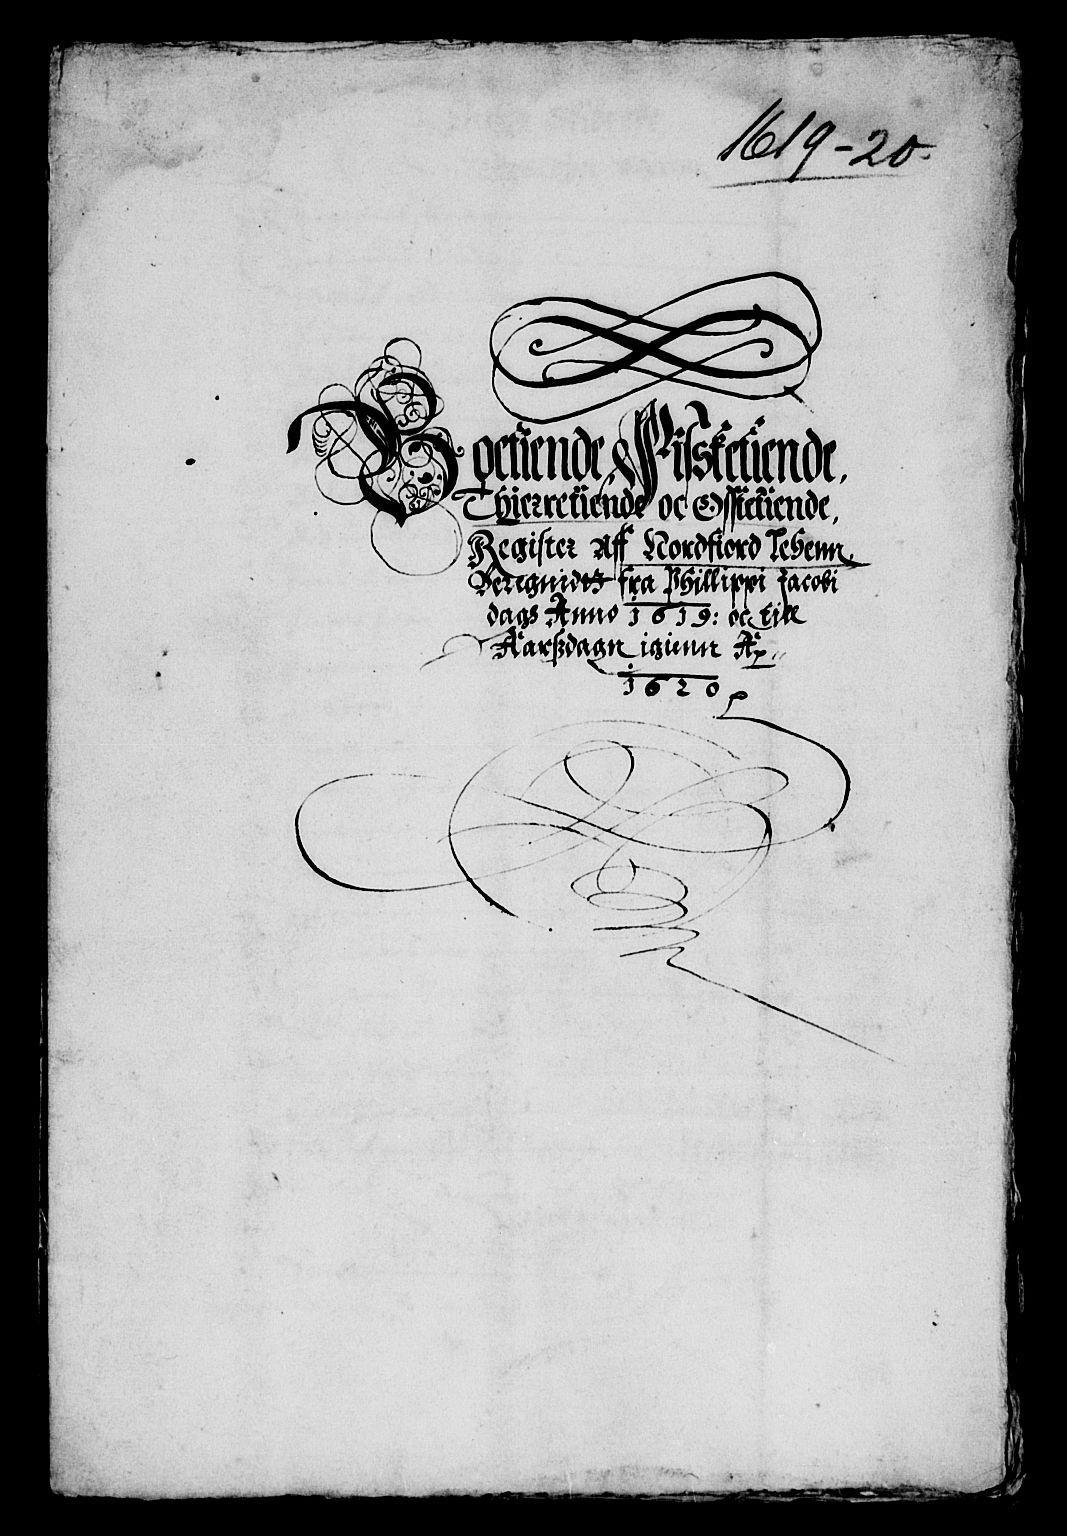 1619-20.
Koetiende, Fiisketiende,
Thierretiende oc Ossietiende,
Register Aff Nordfiord Lehenn,
Beregnidtt fra Phillippi Jacobi
dags Anno 1619: oc till
Aarßdagn igienn Ao
1620